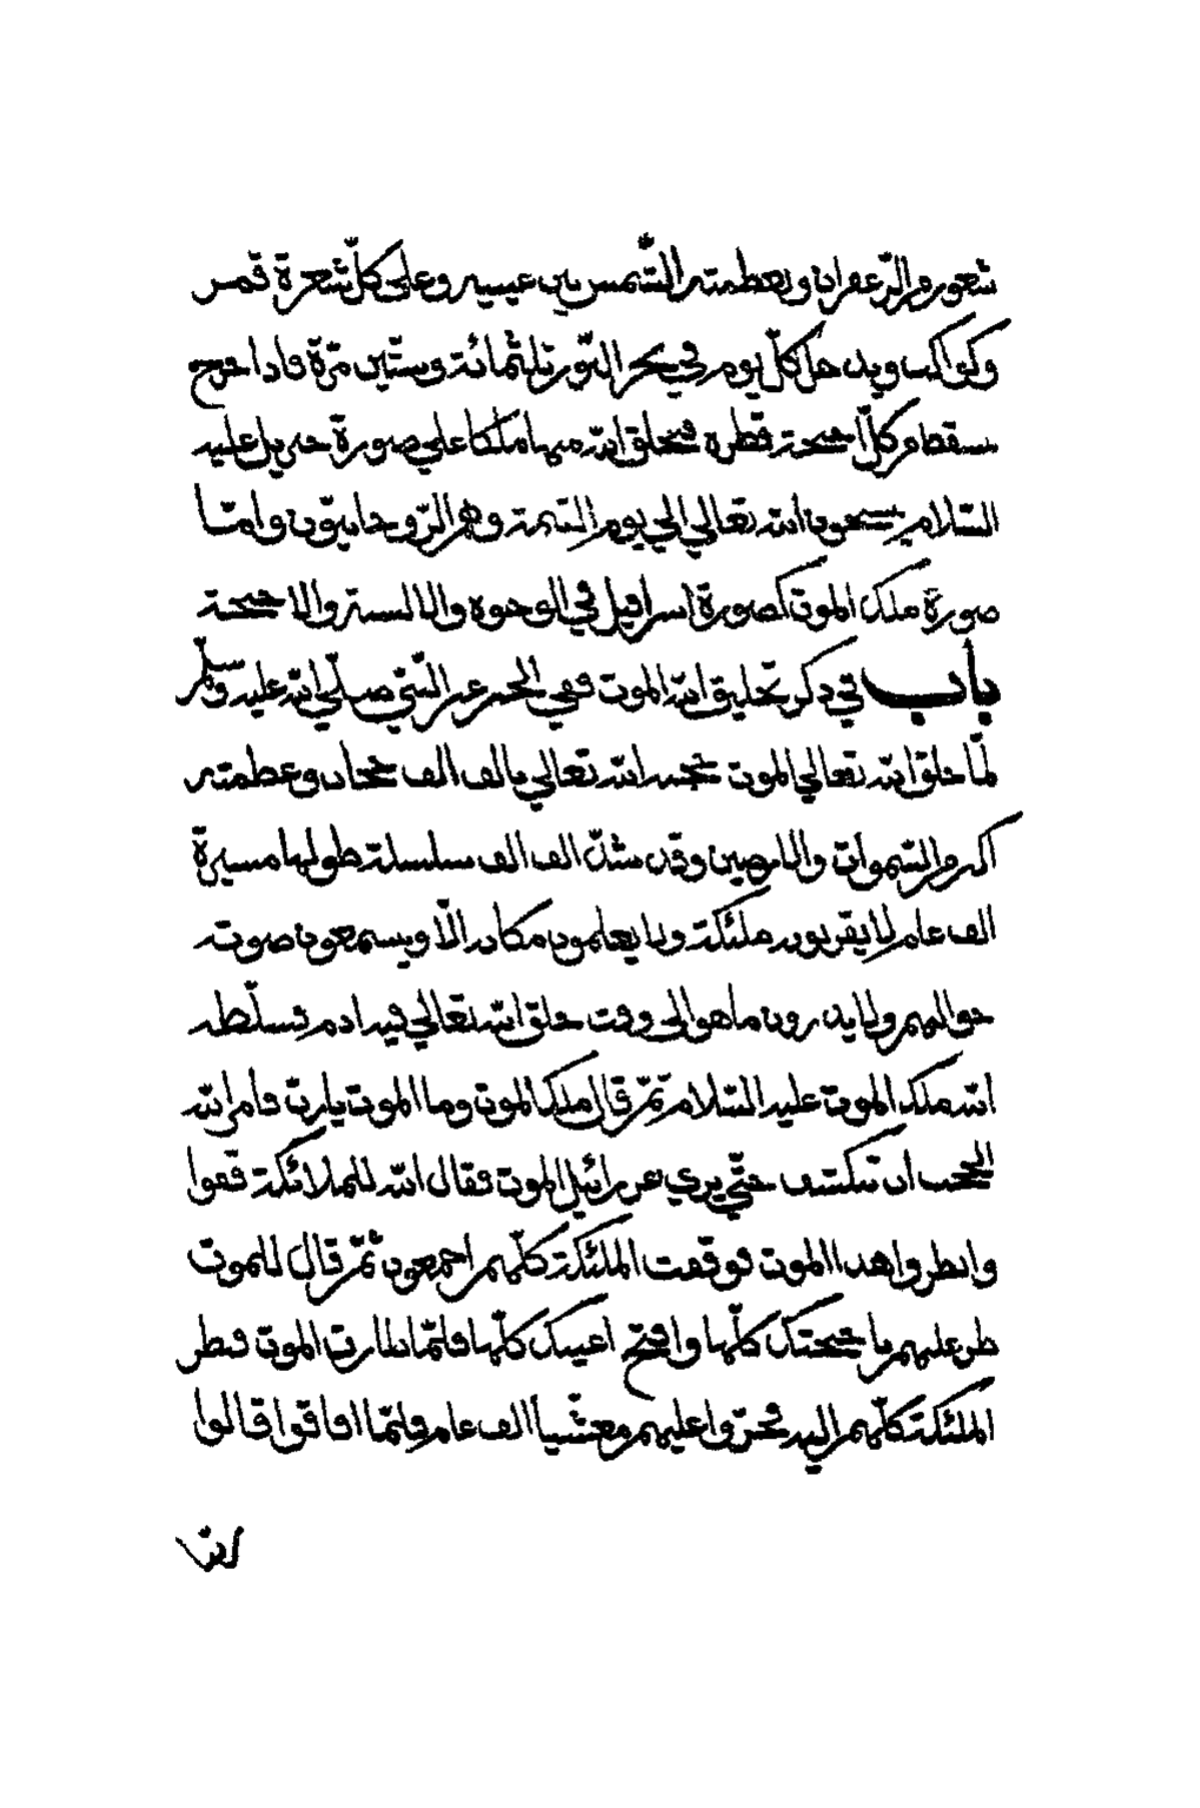 شعور من الزعفران وبعظمته الشمس بين عينيه وعلى كلّ شعرة قمر
وكواكب ويدخل كلّ يوم في بحر النّور ثلثمائة وستّين مرّة فاذا خرج
سقط من كلّ اجنحته قطرة فيخلق الله منها ملكا على صورة جبريل عليه
السّلام يسبحون الله تعالي الي يوم القيمة وهم الرّوحانيّون وامّا
صورة ملك الموت كصورة اسرافيل في الوجوه والالسنة والاجنحة
باب في ذكر تخليق الله الموت ففي الخبر عن النّبيّ صلّي الله عليه وسلّم
لمّا خلق الله تعالي الموت حجبه الله تعالي بالف الف حجاب وعظمته
اكبر من السّموات والارضين وقد شدّ الف الف سلسلة طولها مسيرة
الف عام لا يقربون ملئكة ولا يعلمون مكانه الّا ويسمعون صوته
حواليهم ولا يدرون ما هو الى وقت خلق الله تعالي فيه ادم فسلّطه
الله ملك الموت عليه السّلام ثمّ قال ملك الموت وما الموت يا ربّ فامر الله
الحجب أن تنكشف حتّي يري عزرائيل الموت فقال الله للملائكة قفوا
وانظروا هذا الموت فوقفت الملئكة كلّهم اجمعون ثمّ قال للموت
طر عليهم باجنحتك كلّها وافتح اعينك كلّها فلمّا طارت الموت فنظر
الملئكة كلّهم اليه فخرّوا عليهم مغشّيا الف عام فلمّا افاقوا قالوا
ربّنا